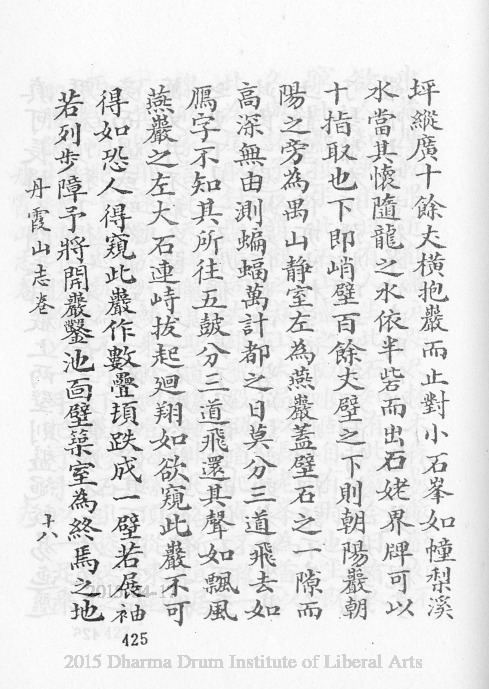 坪縱廣十餘丈橫抱巖而止對小石峯如幢梨溪
水當其懷隨龍之水依半砦而出石姥界牌可以
十指取也下即峭壁百餘丈壁之下則朝陽巖朝
陽之旁為禺山靜室左為燕巖蓋壁石之一隙而
高深無由測蝙蝠萬計都之日莫分三道飛去如
鴈字不知其所往五鼓分三道飛還其聲如飄風
燕巖之左大石連峙拔起迴翔如欲窺此巖不可
得如恐人得窺此巖作數疊頓跌成一壁若展袖
若列步障予將開巖鑿池面壁築室為終焉之地
丹霞山志卷
十八
425
2015 Dharma Drum Institute of Liberal Arts